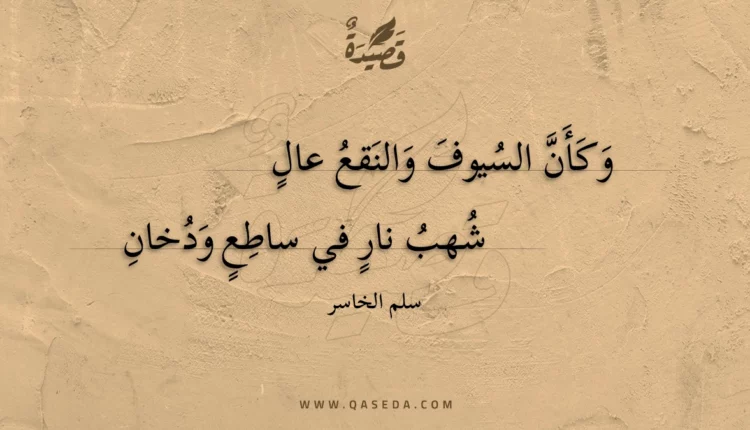 قَصِيْدَةٌ
وَكَأَنَّ السُيوفَ وَالنَقعُ عالٍ
شُهبُ نارٍ في ساطِعٍ وَدُخانِ
سلم الخاسر
WWW.QASEDA.COM